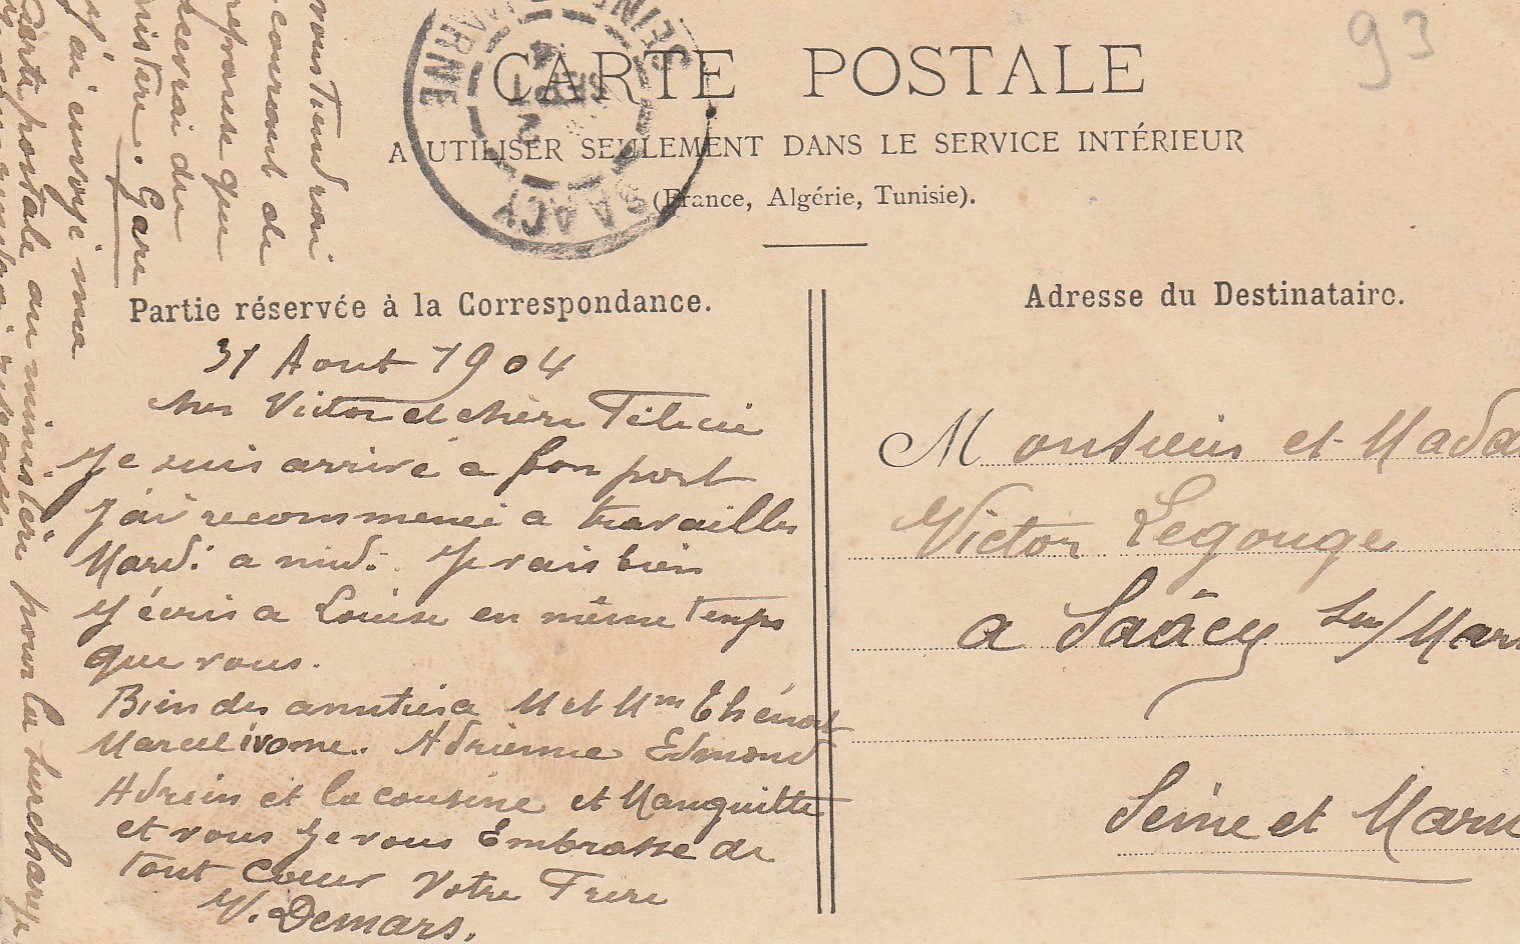 93
CARTE POSTALE
A UTILISER SEULEMENT DANS LE SERVICE INTÉRIEUR
(France, Algérie, Tunisie).
SAACY
SEINE MARNE
2
SEPT
4
Partie réservée à la Correspondance.
Adresse du Destinataire.
31 Aout 1904
cher Victor et chère Félicie
Je suis arrivé a bon port
J'ai recommencé a travailler
Mardi a midi. Je vais bien
J'écris a Louise en même temps
que vous.
Bien des amitiés a M et Mme Thénot
Marcel ivonne. Adrienne Edmond
Adrein et la cousine et
et vous Je vous Embrasse de
tout Coeur Votre Frere
V. Demars.
Monsieur et Mada
Victor Legouge
a Saâcy Sur/Mar
Seine et Marn
carte postale au ministère pour la surcharge
J'ai envoyé ma
nistère. Gare
cevrai du
reponse que
courant de
vous tiendrai